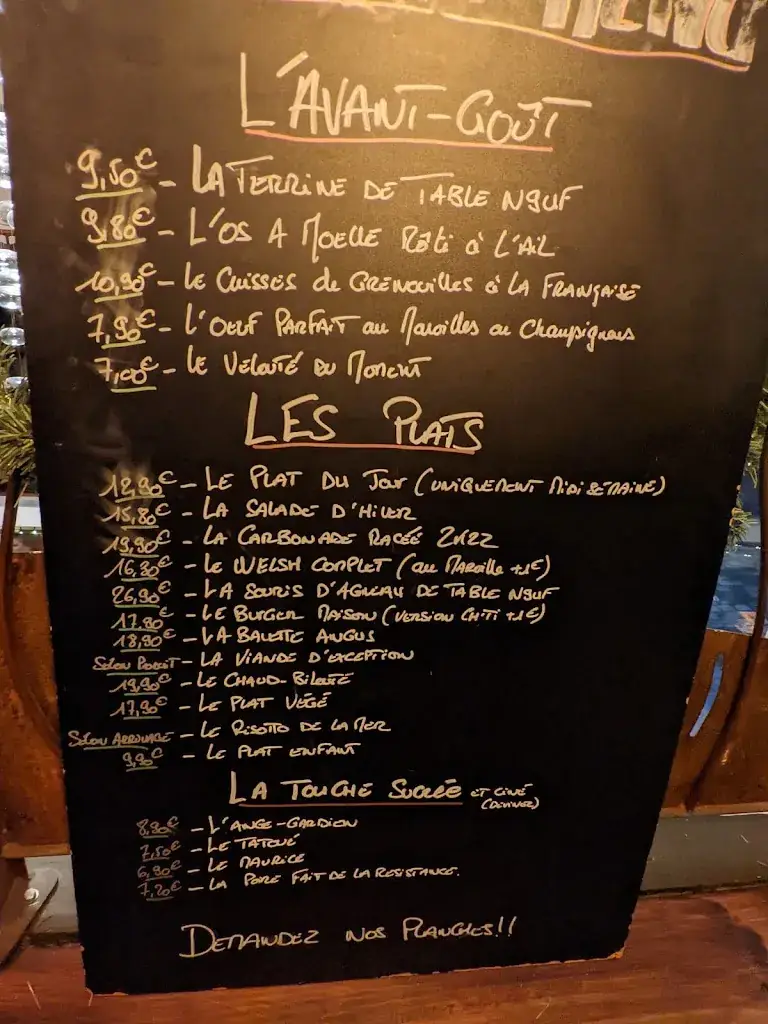 MENU
L'AVANT-GOÛT
9,50€ - LA TERRINE DE TABLE N9UF
9,80€ - L'OS A MOELLE Rôti à L'AIL
10,90€ - LE CUISSES de GRENOUILLES à LA FRANÇAISE
7,90€ - L'OEUF PARFAIT au Maroilles ou Champignons
7,00€ - LE VELOUTÉ DU MOMENT
LES PLATS
12,90€ - LE PLAT DU JOUR (UNIQUEMENT MIDI SEMAINE)
15,80€ - LA SALADE D'HIVER
19,90€ - LA CARBONADE RACÉE 2K22
16,90€ - LE WELSH COMPLET (au MAROILLE +1€)
26,90€ - LA SOURIS D'AGNEAU DE TABLE N9UF
17,90€ - LE BURGER MAISON (VERSION CH'TI +1€)
18,90€ - LA BAVETTE ANGUS
SELON PRODUIT - LA VIANDE D'EXCEPTION
19,90€ - LE CHAUD-BILOUTE
17,90€ - LE PLAT VÉGÉ
SELON ARRIVAGE - LE RISOTTO DE LA MER
9,90€ - LE PLAT ENFANT
LA TOUCHE SUCRÉE ET CINÉ
(DEVINER)
8,90€ - L'ANGE-GARDIEN
7,50€ - LE TATOUÉ
6,90€ - LE MAURICE
7,20€ - LA POIRE FAIT DE LA RESISTANCE.
DEMANDEZ NOS PLANCHES!!